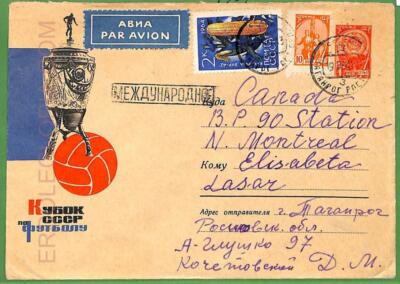 АВИА
PAR AVION
1964
2 К
СССР
10
МЕЖДУНАРОДНОЕ
Куда
Canada
B.P. 90 Station
N. Montreal
Кому
Elisabeta
Lasar
Адрес отправителя
г. Таганрог
Ростовск. обл.
А-Глушко 97
Кочетовский Д. М.
Кубок
СССР
по
футболу